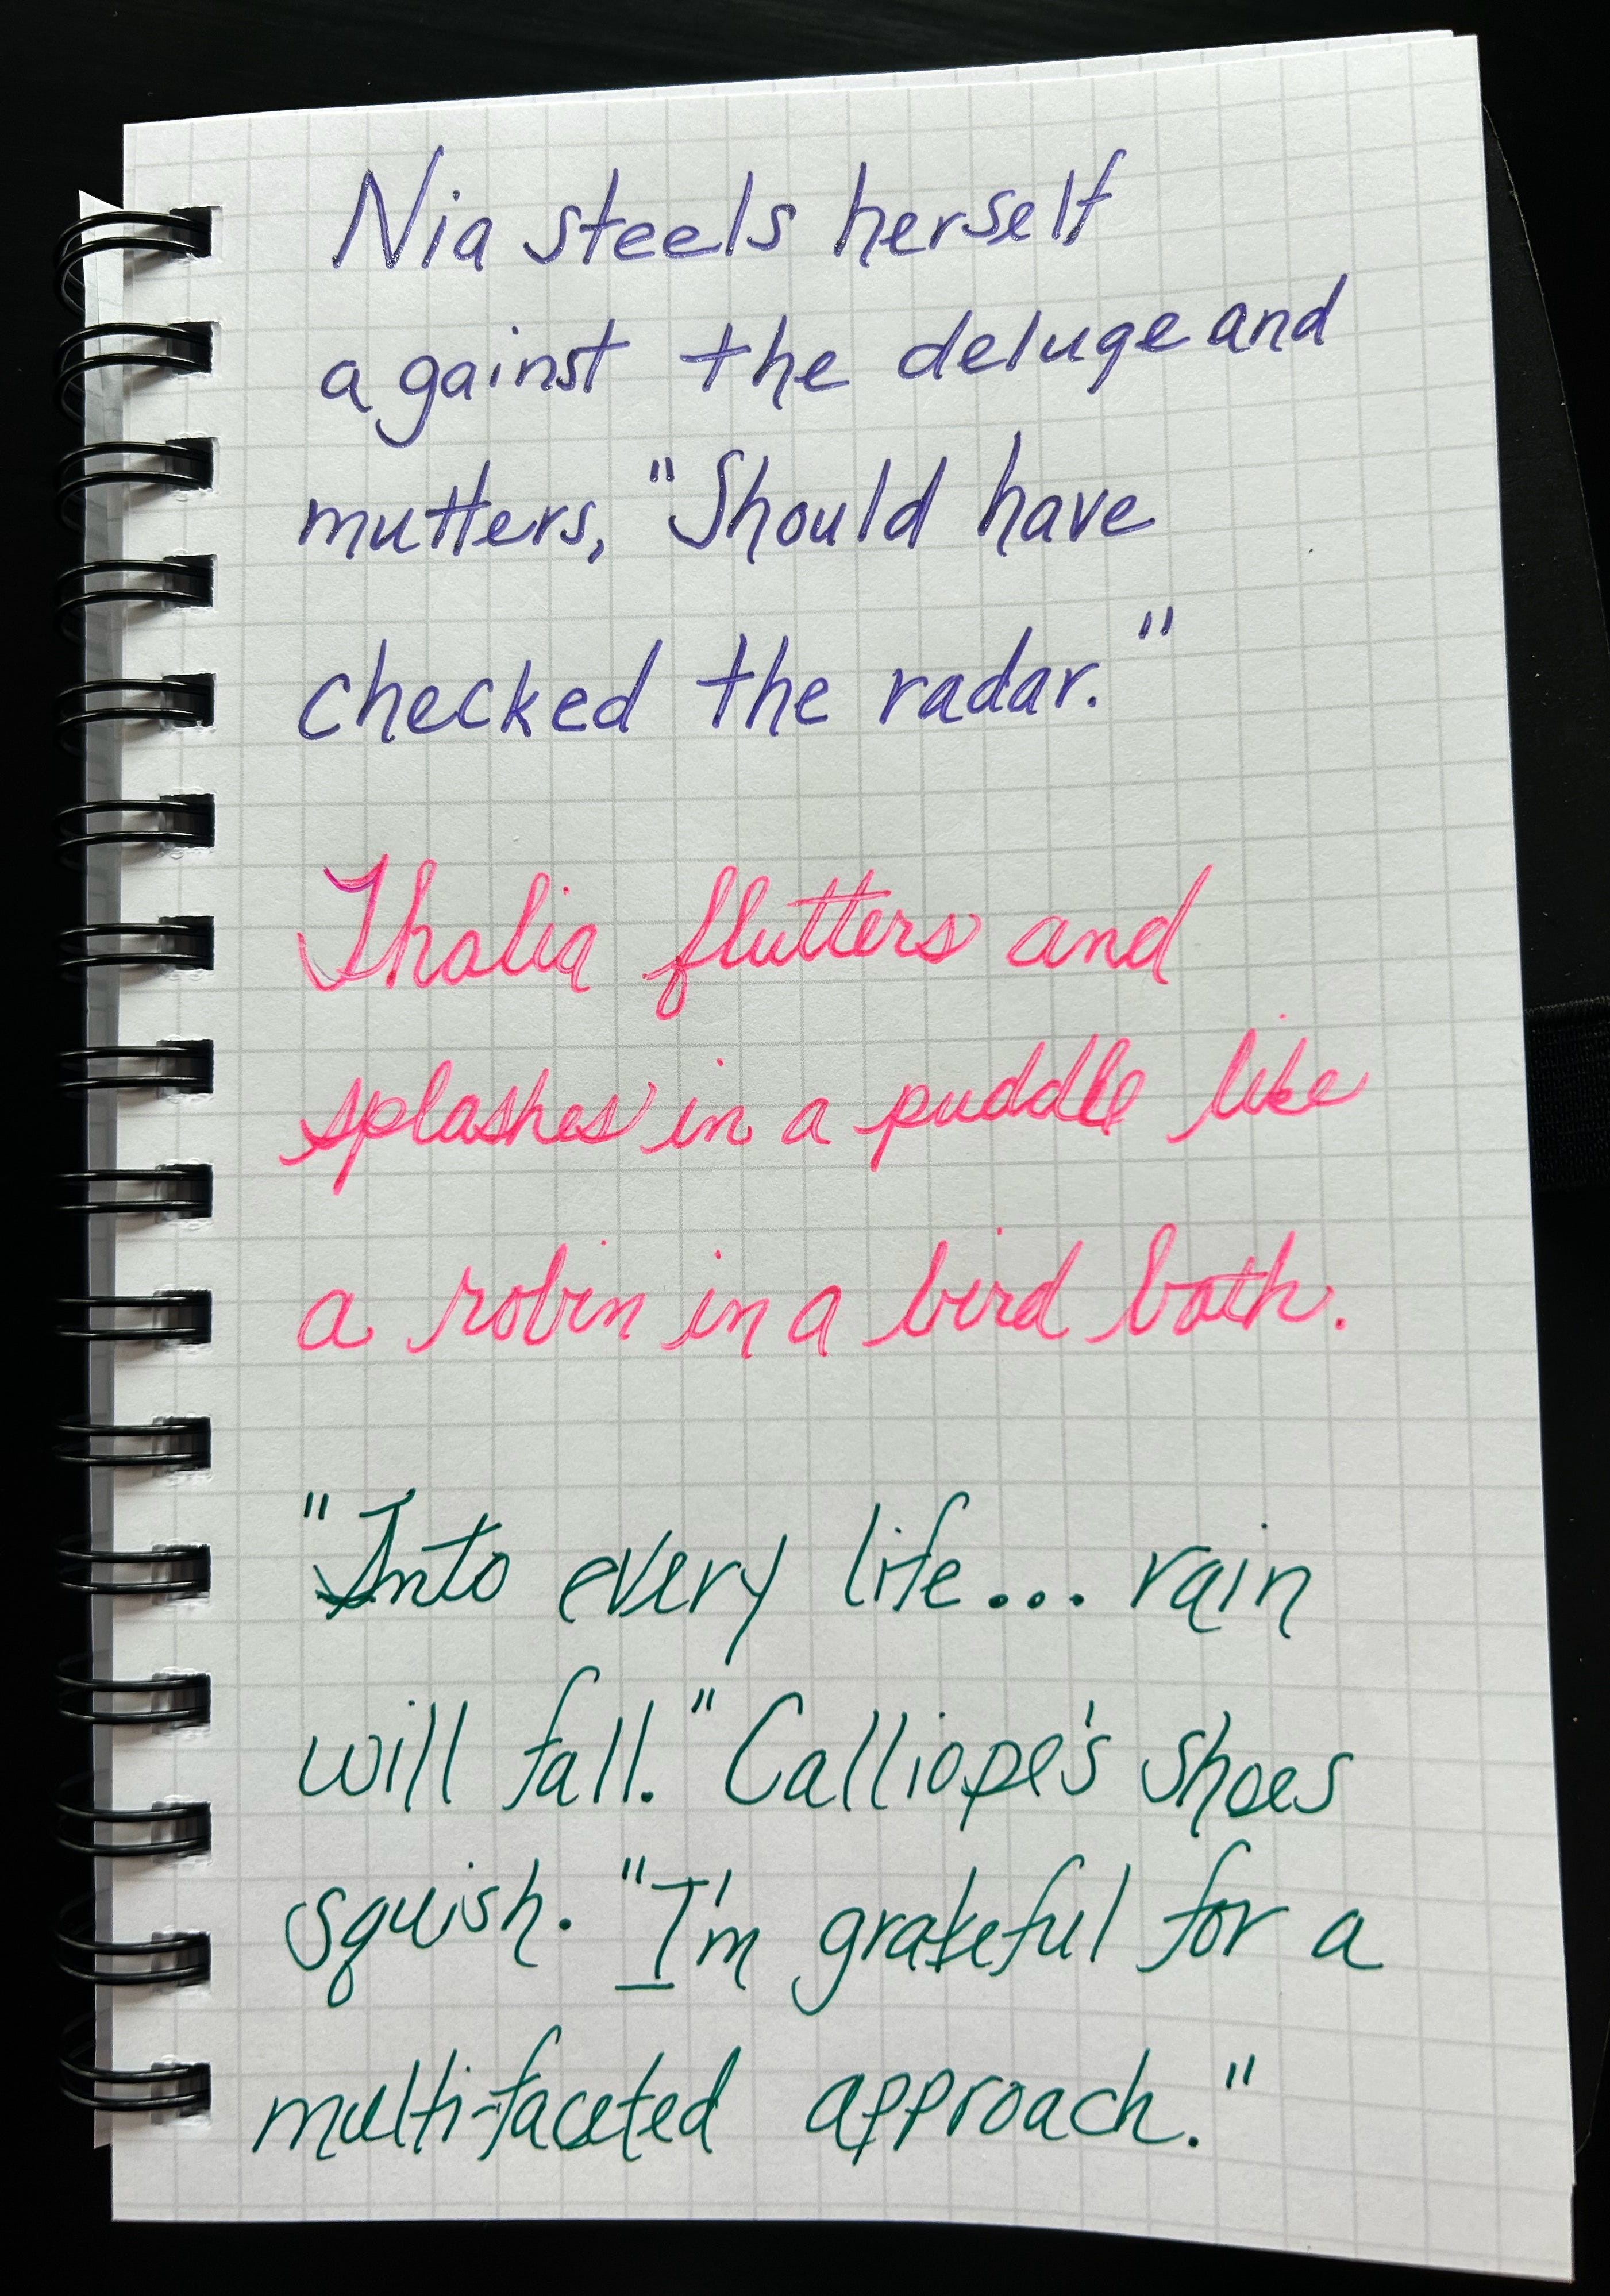 Nia steels herself
against the deluge and
mutters, "Should have
checked the radar."
Thalia flutters and
splashes in a puddle like
a robin in a bird bath.
"Into every life... rain
will fall." Calliope's shoes
squish. "I'm grateful for a
multi-faceted approach."